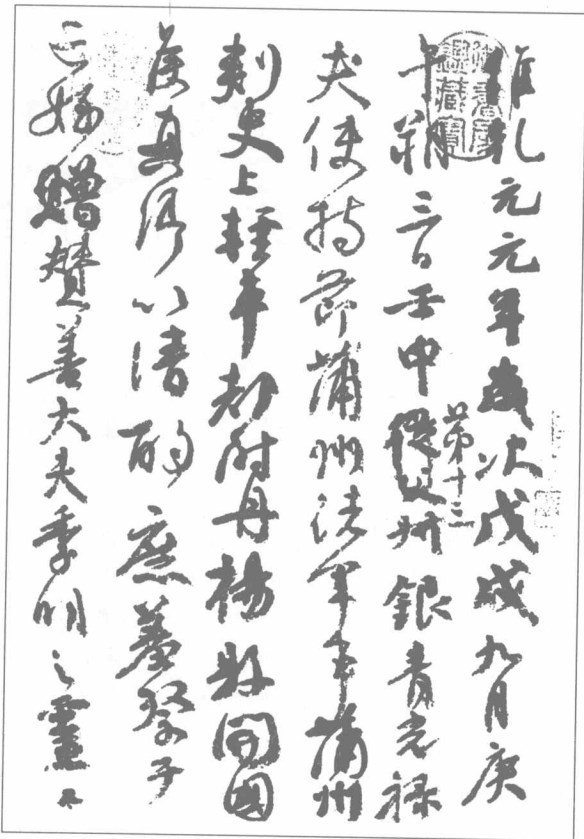 維乾元元年歲次戊戌九月庚
午朔三日壬申第十三叔銀青光祿
夫使持節蒲州諸軍事蒲州
刺史上輕車都尉丹楊縣開國
侯真卿以清酌庶羞祭于
亡姪贈贊善大夫季明之靈曰